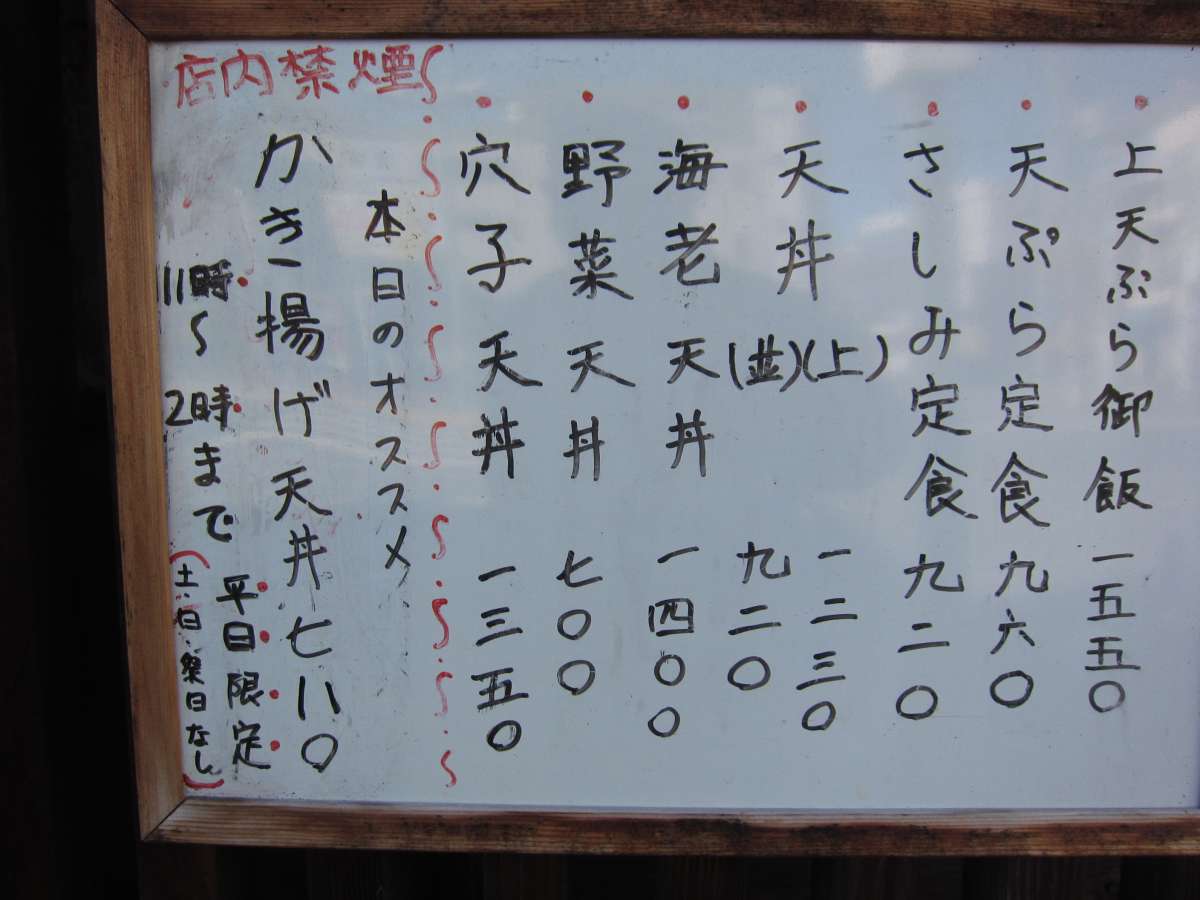 上天ぷら御飯 一五五〇
天ぷら定食 九六〇
さしみ定食 九二〇
天丼 (上) 一二三〇
(並) 九二〇
海老天丼 一四〇〇
野菜天丼 七〇〇
穴子天丼 一三五〇
本日のオススメ
かき揚げ天丼 七八〇
平日限定
11時〜2時まで
(土・日・祭日なし)
店内禁煙